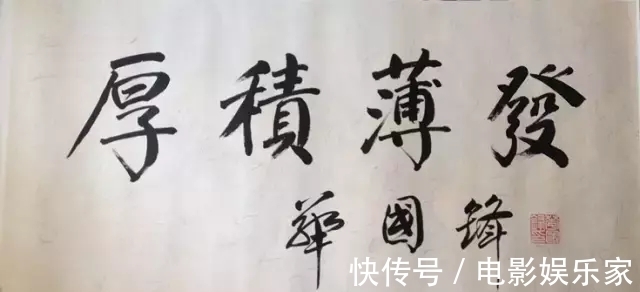 厚積薄發
華國鋒
快传号/电影娱乐家